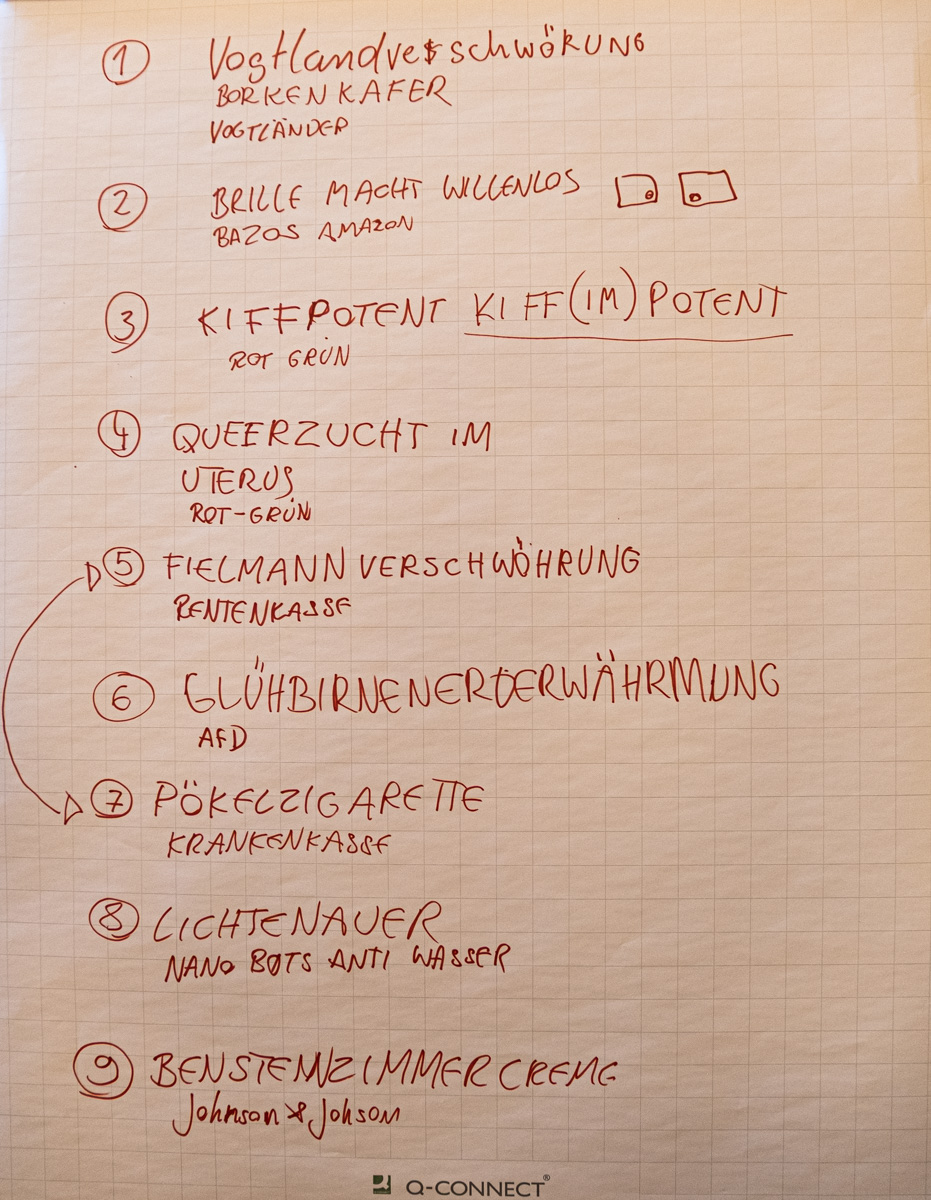 1 Vogtlandverschwörung
BORKENKAFER
VOGTLÄNDER
2 BRILLE MACHT WILLENLOS
BAZOS AMAZON
3 KIFFPOTENT KIFF(IM)POTENT
ROT GRÜN
4 QUEERZUCHT IM
UTERUS
ROT-GRÜN
5 FIELMANNVERSCHWÖHRUNG
RENTENKASSE
6 GLÜHBIRNENERDERWÄHRMUNG
AfD
7 PÖKELZIGARETTE
KRANKENKASSE
8 LICHTENAUER
NANO BOTS ANTI WASSER
9 BENSTEMZIMMERCREME
Johnson & Johson
Q-CONNECT®